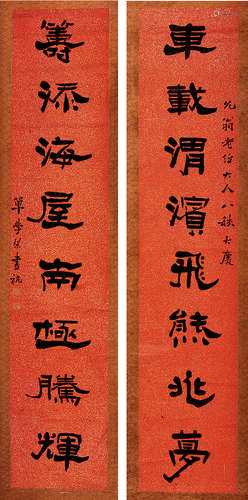 車載渭濱飛熊兆夢
允翁老伯大人八秩大慶
籌添海屋南極騰輝
單學傑書祝